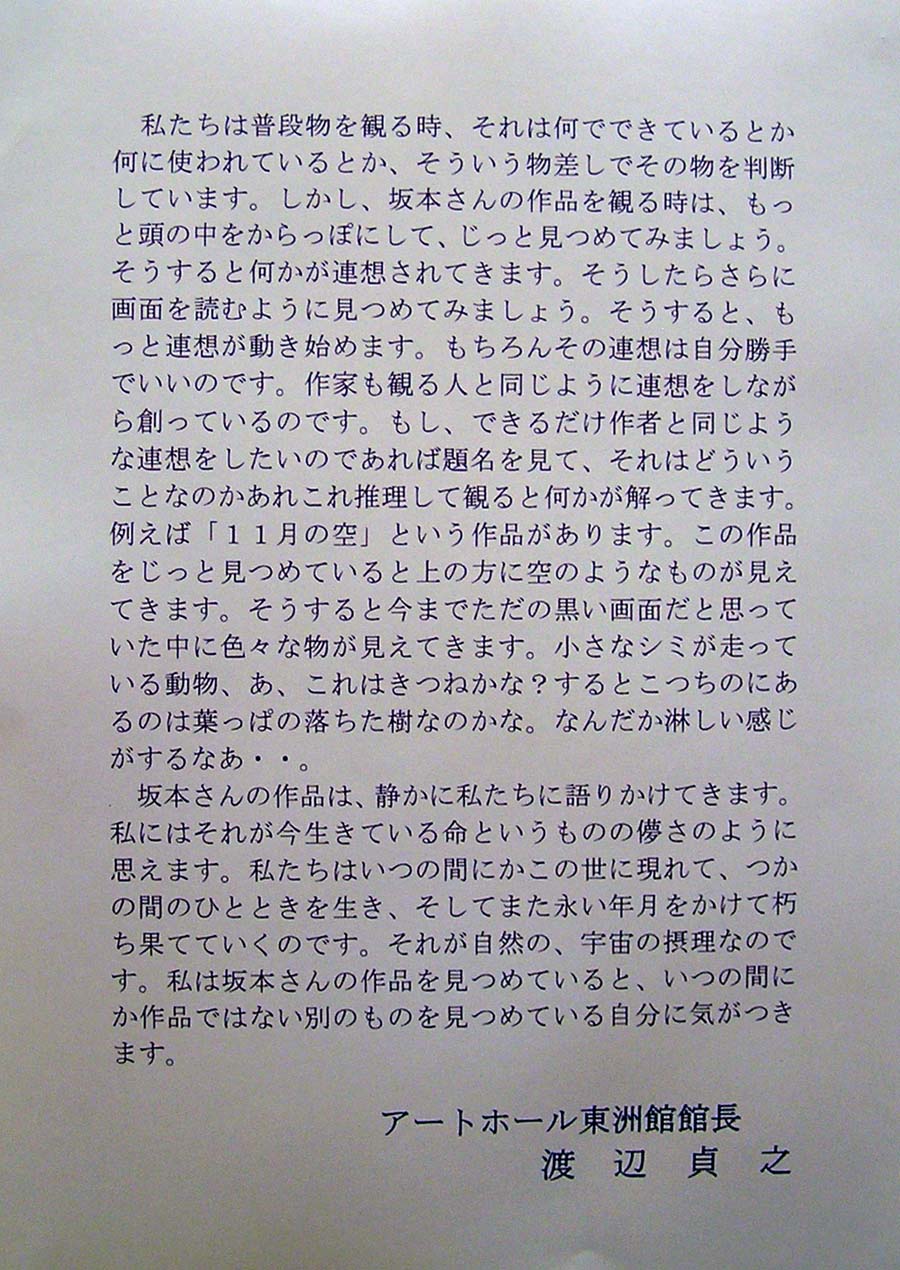 私たちは普段物を観る時、それは何でできているとか
何に使われているとか、そういう物差しでその物を判断
しています。しかし、坂本さんの作品を観る時は、もっ
と頭の中をからっぽにして、じっと見つめてみましょう。
そうすると何かが連想されてきます。そうしたらさらに
画面を読むように見つめてみましょう。そうすると、も
っと連想が動き始めます。もちろんその連想は自分勝手
でいいのです。作家も観る人と同じように連想をしなが
ら創っているのです。もし、できるだけ作者と同じよう
な連想をしたいのであれば題名を見て、それはどういう
ことなのかあれこれ推理して観ると何かが解ってきます。
例えば「１１月の空」という作品があります。この作品
をじっと見つめていると上の方に空のようなものが見え
てきます。そうすると今までただの黒い画面だと思って
いた中に色々な物が見えてきます。小さなシミが走って
いる動物、あ、これはきつねかな？するとこつちのにあ
るのは葉っぱの落ちた樹なのかな。なんだか淋しい感じ
がするなあ・・。
坂本さんの作品は、静かに私たちに語りかけてきます。
私にはそれが今生きている命というものの儚さのように
思えます。私たちはいつの間にかこの世に現れて、つか
の間のひとときを生き、そしてまた永い年月をかけて朽
ち果てていくのです。それが自然の、宇宙の摂理なので
す。私は坂本さんの作品を見つめていると、いつの間に
か作品ではない別のものを見つめている自分に気がつき
ます。
アートホール東洲館館長
渡辺貞之